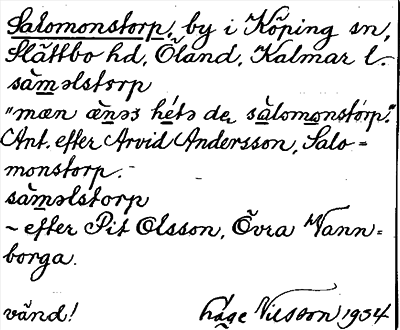 Salomonstorp, by i Köping sn,
Slättbo hd, Öland, Kalmar l.
sàməlstorp
"mæn ǟnəs hétə de sàlomonstórp."
Ant. efter Arvid Andersson, Salo=
monstorp.
sàməlstorp
~ efter Pit Olsson, Övra Vann=
borga.
vänd! Nilsson 1934